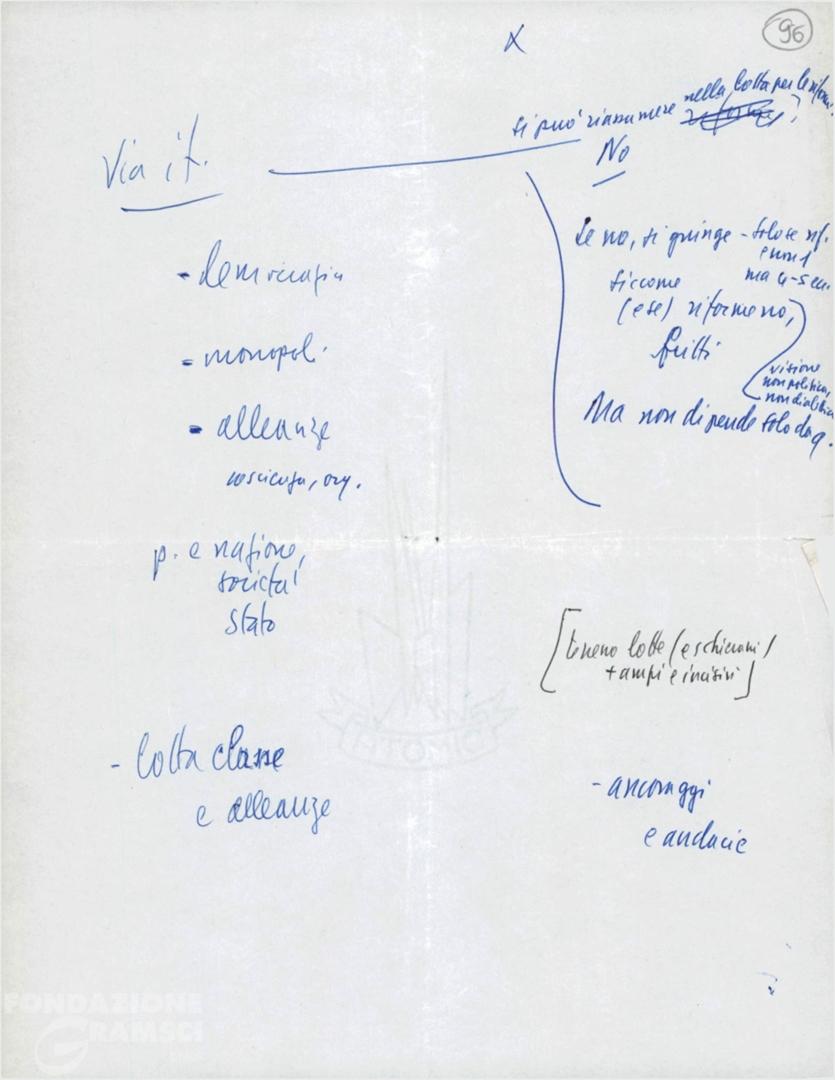 96
X
si può riassumere nella lotta per le riforme?
No
Via it.
- democrazia
- monopoli
- alleanze
coscienza, org.
p. e nazione,
società
stato
- lotta classe
e alleanze
Se no, si spinge - solo se rif.
e non 1
siccome
ma 4-5 ecc.
(e se) riforme no,
fritti
visione
non politica,
non dialettica
Ma non dipende solo da q.
[terreno lotte (e schieram)
+ ampi e incisivi]
- ancoraggi
e audacie
FONDAZIONE
GRAMSCI